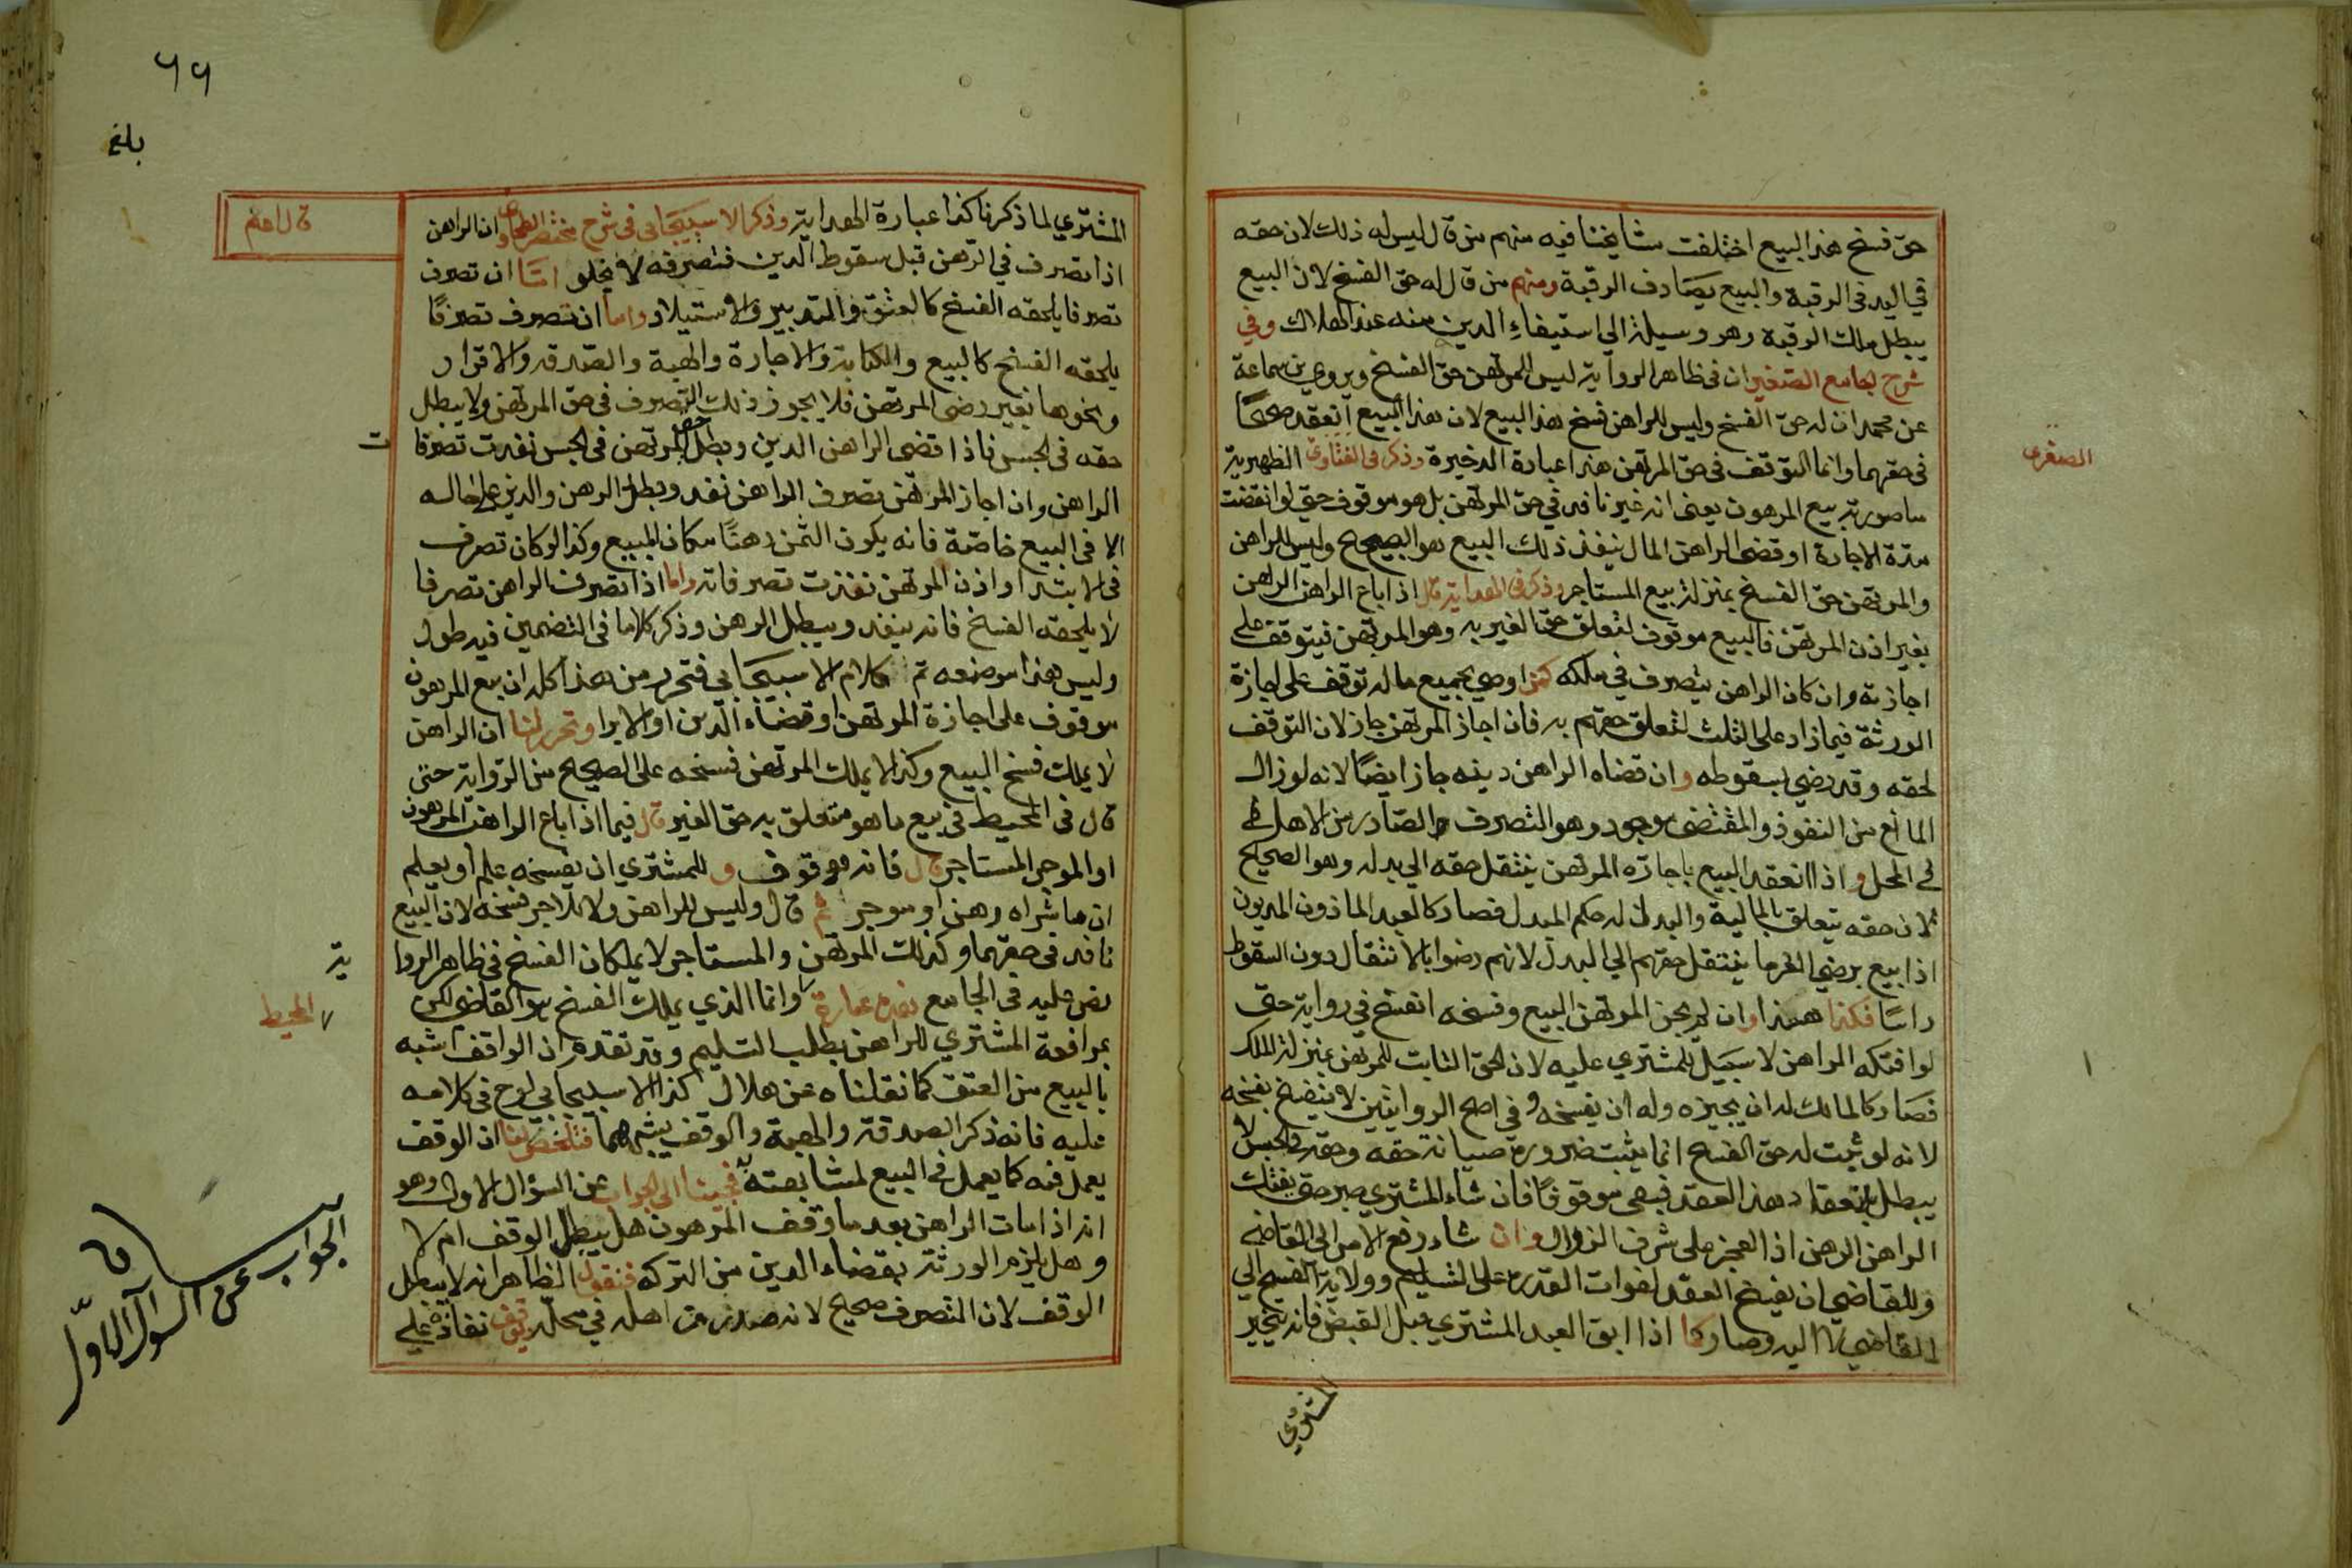 حق فسخ هذا البيع اختلفت مشايخنا فيه منهم من قال ليس له ذلك لان حقه
في اليد في الرقبة والبيع يصادف الرقبة ومنهم من قال له حق الفسخ لان البيع
يبطل ملك الرقبة وهو وسيلة الي استيفاء الدين منه عند الهلاك وفي
شرح الجامع الصغير ان في ظاهر الرواية ليس للمرتهن حق الفسخ ويروي بن سماعة
عن محمد ان له حق الفسخ وليس للراهن فسخ هذا البيع لان هذا البيع انعقد صحيحًا
في حقهما وانما التوقف في حق المرتهن هذا عبارة الذخيرة وذكر في الفتاوى الظهيرية
الصغرى
ما صورته بيع المرهون يعنى انه غير نافد في حق المرتهن بل هو موقوف حتي لو انقضت
مدة الاجارة او قضى الراهن المال ينفذ ذلك البيع هو الصحيح وليس للراهن
والمرتهن حق الفسخ بمنزلة بيع المستاجر وذكر في الهداية قال اذا باع الراهن الرهن
بغير اذن المرتهن فالبيع موقوف لتعلق حق الغير به وهو المرتهن فيتوقف علي
اجازته وان كان الراهن يتصرف في ملكه كمن اوصي بجميع ماله توقف على اجازة
الورثة فيما زاد على الثلث لتعلق حقهم به فان اجاز المرتهن جاز لان التوقف
لحقه وقد رضي بسقوطه وان قضاه الراهن دينه جاز ايضًا لانه لو زال
المانع من النفوذ والمقتضى موجود وهو التصرف الصادر من الاهل في
في المحل واذا انعقد البيع باجازه المرتهن ينتقل حقه الي بدله وهو الصحيح
لان حقه يتعلق بالمالية والبدل له حكم المبدل فصار كالعبد الماذون المديون
اذا بيع برضي الغرما ينتقل حقهم الي البدل لانهم رضوا بالانتقال دون السقوط
راسًا فكذا هذا وان لم يجز المرتهن البيع وفسخه انفسخ في رواية حتى
لو افتكه الراهن لا سبيل للمشتري عليه لان الحق الثابت للمرتهن بمنزلة الملك
فصار كالمالك له ان يجيزه وله ان يفسخه وفي اصح الروايتين لا ينفسخ بفسخه
لانه لو ثبت له حق الفسخ انما يثبت ضرورة صيانة حقه وحقه في الحبس لا
يبطل بانعقاد هذا العقد فبقى موقوفًا فان شاء المشتري صبر حتى يفتك
الراهن الرهن اذ العجز على شرف الزوال وان شاء رفع الامر الى القاضي
وللقاضي ان يفسخ العقد لفوات القدرة على التسليم وولاية الفسخ الي
القاضي لا اليه وصار كما اذا ابق العبد المشتري قبل القبض فانه يتخير
المشتري
٦٦
بلغ
المشتري لما ذكرنا كذا عبارة الهداية وذكر الاسبيجابي في شرح مختصر الطحاوي ان الراهن
اذا تصرف في الرهن قبل سقوط الدين فتصرفه لا يخلو امّا ان تصرف
تصرفا يلحقه الفسخ كالعتق والتدبير والاستيلاد واما ان تصرف تصرفًا
يلحقه الفسخ كالبيع والكتابة والاجارة والهبة والصدقه والاقرار
ونحوها بغير رضى المرتهن فلا يجوز ذلك التصرف في حق المرتهن ولا يبطل
حقه في الحبس فاذا قضى الراهن الدين وبطل حق المرتهن في الحبس نفدت تصرفا
ت
الراهن وان اجاز المرتهن تصرف الراهن نفد وبطل الرهن والدين على حاله
الا في البيع خاصّة فانه يكون الثمن رهنًا مكان المبيع وكذا لو كان تصرف
في الابتداء واذن المرتهن نفذت تصرفاته واما اذا تصرف الراهن تصرفا
لا يلحقه الفسخ فانه ينفد ويبطل الرهن وذكر كلاما في التضمين فيه طول
وليس هذا موضعه تم كلام الاسبيجابي فتحرر من هذا كله ان بيع المرهون
موقوف على اجازة المرتهن او قضاء الدين او الابرا وتحرر لنا ان الراهن
لا يملك فسخ البيع وكذا لا يملك المرتهن فسخه على الصحيح من الرواية حتى
قال في المحيط في بيع ما هو متعلق به حق الغير قال فيما اذا باع الراهن المرهون
او الموجر المستاجر قال فانه موقوف وللمشتري ان يفسخه علم او يعلم
ان ما شراه رهن او موجر ثم قال وليس للراهن ولا للاجر فسخه لان البيع
نافد في حقهما وكذلك المرتهن والمستاجر لا يملكان الفسخ في ظاهر الروا
ية
نص عليه في الجامع هذه عبارة وانما الذي يملك الفسخ هو القاضي لكن
المحيط
بمرافعة المشتري للراهن بطلب التسليم وقد تقدم ان الواقف اشبه
بالبيع من العتق كما نقلناه عن هلال كذا الاسبيجابي لوح في كلامه
عليه فانه ذكر الصدقة والهبة والوقف يشبههما فتلخص لنا ان الوقف
يعمل فيه كما يعمل في البيع لمشابهته فجيئنا الى الجواب عن السؤال الاول وهو
انه اذا مات الراهن بعد ما وقف المرهون هل يبطل الوقف ام لا
وهل يلزم الورثة بقضاء الدين من التركه فنقول الظاهر انه لا يبطل
الوقف لان التصرف صحيح لانه صدر من اهله في محله توقف نفاذه علي
الجواب عن السوال الاوّل